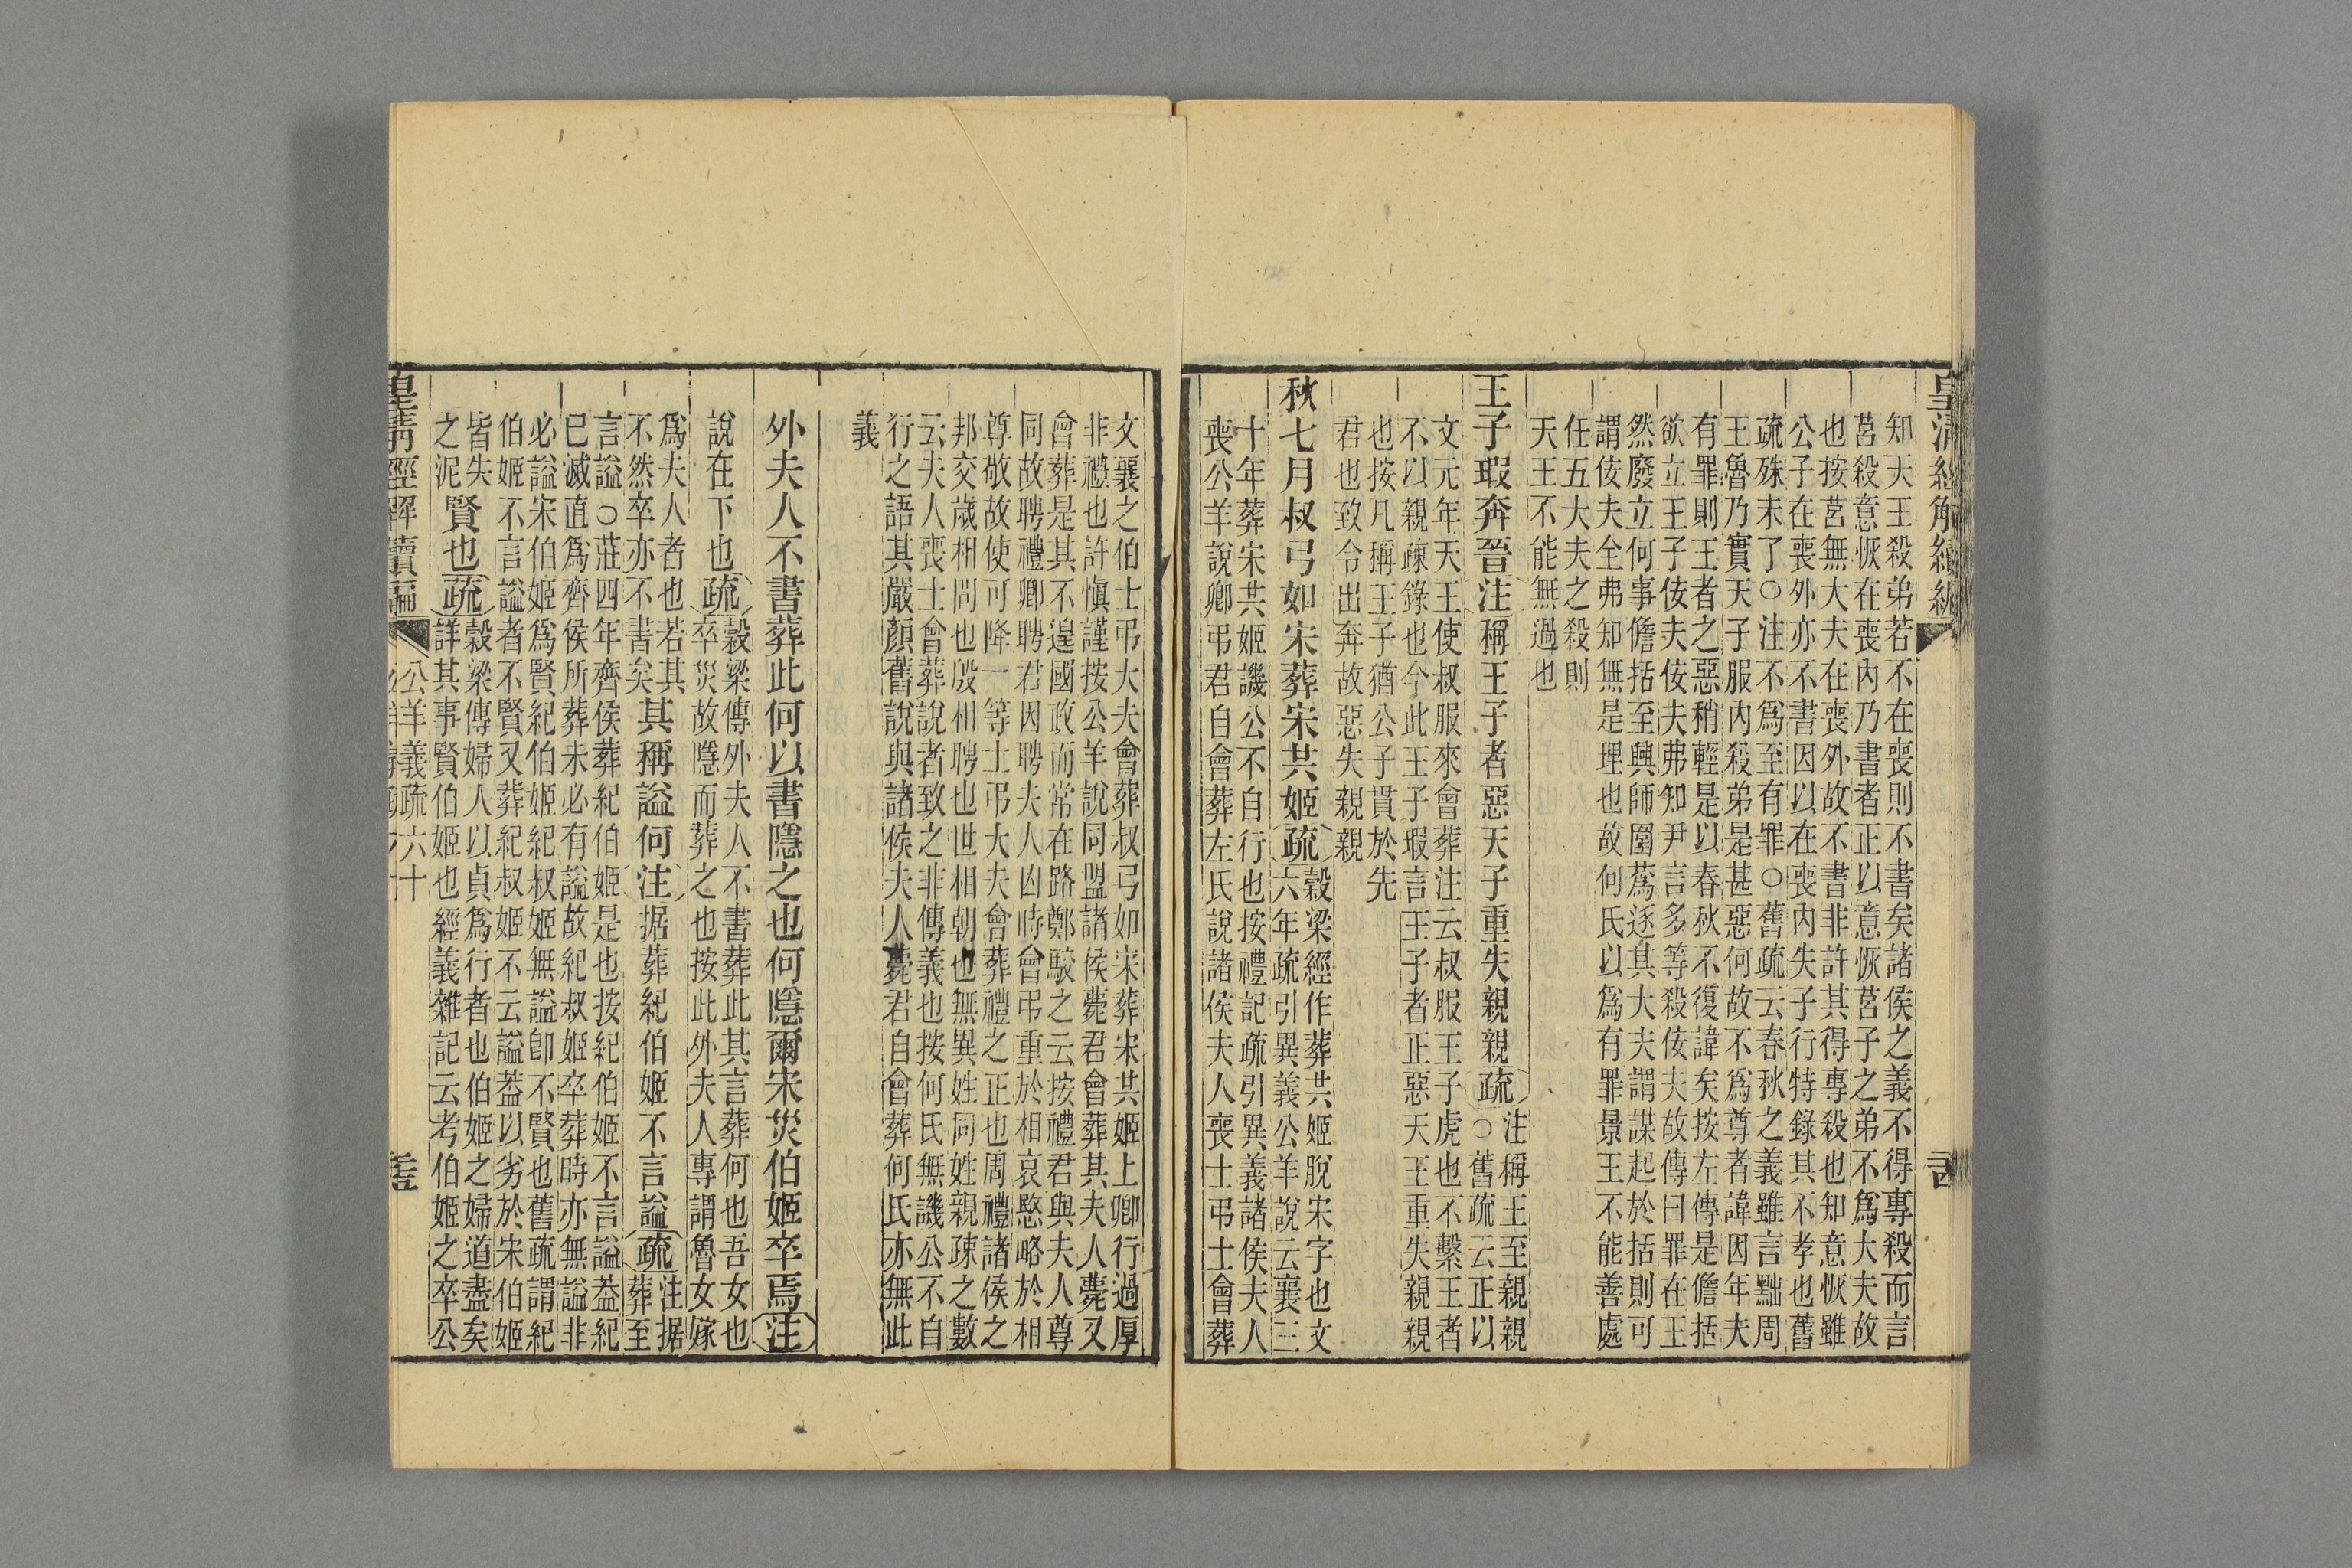 皇清經解續編
知天王殺弟若不在喪則不書矣諸侯之義不得專殺而言
莒殺意恢在喪內乃書者正以意恢莒子之弟不爲大夫故
也按莒無大夫在喪外故不書非許其得專殺也知意恢雖
公子在喪外亦不書因以在喪內失子行特錄其不孝也舊
疏殊未了○注不爲至有罪○舊疏云春秋之義雖言黜周
王魯乃實天子服內殺弟是甚惡何故不爲尊者諱因年夫
有罪則王者之惡稍輕是以春秋不復諱矣按左傳是儋括
欲立王子佞夫佞夫弗知尹言多等殺佞夫故傳曰罪在王
然廢立何事儋括至興師圍蔿逐其大夫謂謀起於括則可
謂佞夫全弗知無是理也故何氏以爲有罪景王不能善處
任五大夫之殺則
天王不能無過也
王子瑕奔晉注稱王子者惡天子重失親親疏
注稱王至親親
○舊疏云正以
文元年天王使叔服來會葬注云叔服王子虎也不繫王者
不以親疎錄也今此王子瑕言王子者正惡天王重失親親
也按凡稱王子猶公子貫於先
君也致令出奔故惡失親親
秋七月叔弓如宋葬宋共姬疏
穀梁經作葬共姬脫宋字也文
六年疏引異義公羊說云襄三
十年葬宋共姬譏公不自行也按禮記疏引異義諸侯夫人
喪公羊說卿弔君自會葬左氏說諸侯夫人喪士弔士會葬
文襄之伯士弔大夫會葬叔弓如宋葬宋共姬上卿行過厚
非禮也許愼謹按公羊說同盟諸侯薨君會葬其夫人薨又
會葬是其不遑國政而常在路鄭駮之云按禮君與夫人尊
同故聘禮卿聘君因聘夫人凶時會弔重於相哀愍略於相
尊敬故使可降一等士弔大夫會葬禮之正也周禮諸侯之
邦交歲相問也殷相聘也世相朝也無異姓同姓親疎之數
云夫人喪士會葬說者致之非傳義也按何氏無譏公不自
行之語其嚴顏舊說與諸侯夫人薨君自會葬何氏亦無此
義
外夫人不書葬此何以書隱之也何隱爾宋災伯姬卒焉注
說在下也疏
穀梁傳外夫人不書葬此其言葬何也吾女也
卒災故隱而葬之也按此外夫人專謂魯女嫁
爲夫人者也若其
不然卒亦不書矣其稱謚何注据葬紀伯姬不言謚疏
注据
葬至
言謚○莊四年齊侯葬紀伯姬是也按紀伯姬不言謚葢紀
已滅直爲齊侯所葬未必有謚故紀叔姬卒葬時亦無謚非
必謚宋伯姬爲賢紀伯姬紀叔姬無謚卽不賢也舊疏謂紀
伯姬不言謚者不賢又葬紀叔姬不云謚葢以劣於宋伯姬
皆失
之泥賢也疏
穀梁傳婦人以貞爲行者也伯姬之婦道盡矣
詳其事賢伯姬也經義雜記云考伯姬之卒公
皇淸經解續編
公羊義疏六十